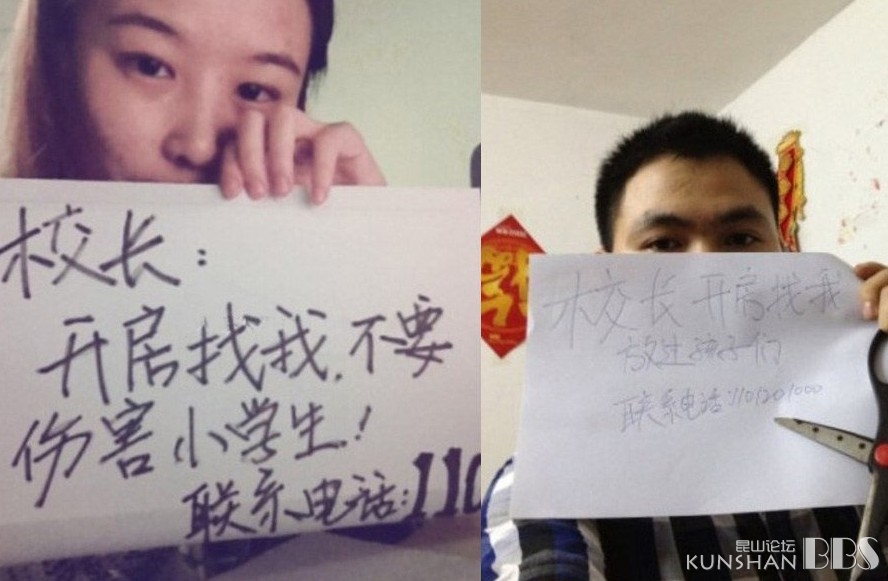 校长：
开房找我，不要
伤害小学生！
联系电话：110
校长 开房找我
放过孩子们
联系电话：110201000
昆山论坛
KUNSHAN BBS